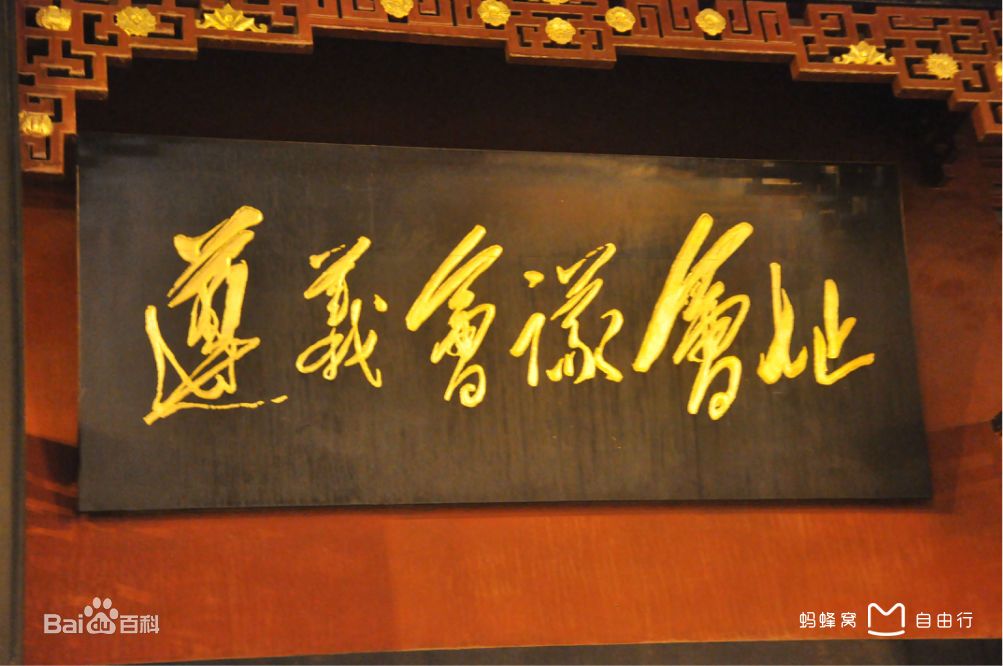 遵義會議會址
Baidu百科
蚂蜂窝 自由行